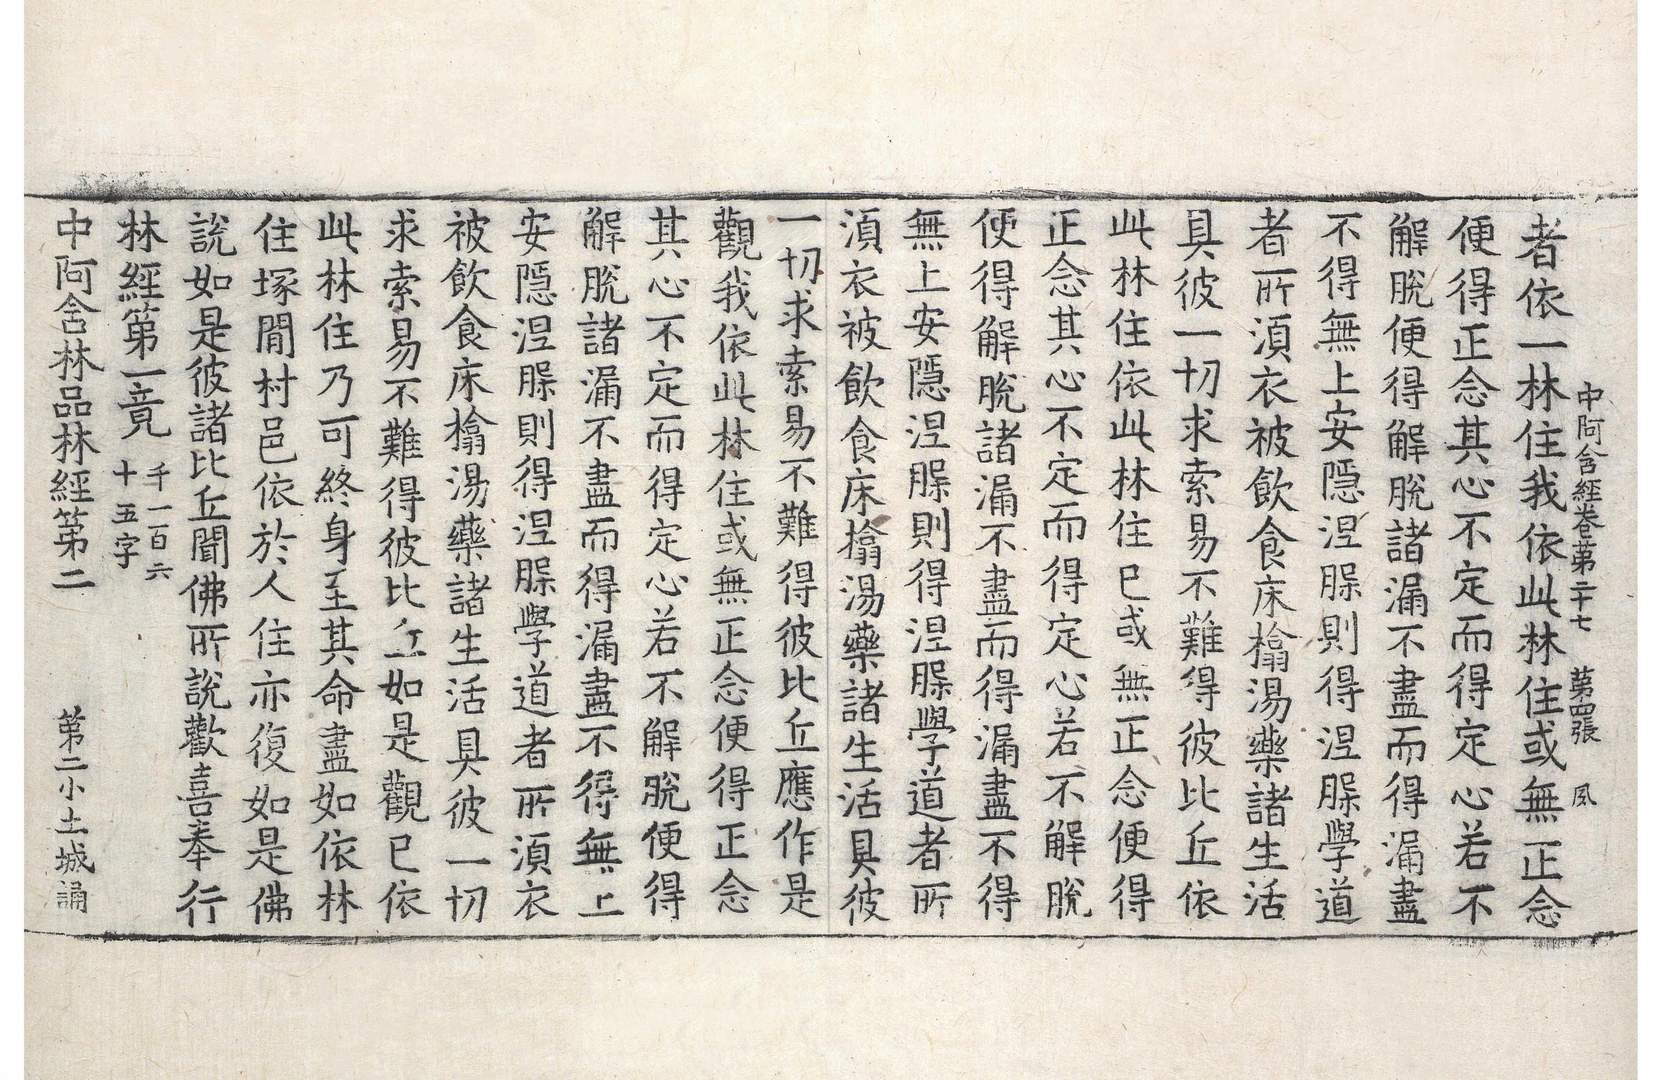 中阿含經卷第二十七 第四張 夙
者依一林住我依此林住或無正念
便得正念其心不定而得定心若不
解脫便得解脫諸漏不盡而得漏盡
不得無上安隱涅槃則得涅槃學道
者所湏衣被飲食床榻湯藥諸生活
具彼一切求索易不難得彼比丘依
此林住依此林住已或無正念便得
正念其心不定而得定心若不解脫
便得解脫諸漏不盡而得漏盡不得
無上安隱涅槃則得涅槃學道者所
湏衣被飲食床榻湯藥諸生活具彼
一切求索易不難得彼比丘應作是
觀我依此林住或無正念便得正念
其心不定而得定心若不解脫便得
解脫諸漏不盡而得漏盡不得無上
安隱涅槃則得涅槃學道者所湏衣
被飲食床榻湯藥諸生活具彼一切
求索易不難得彼比丘如是觀已依
此林住乃可終身至其命盡如依林
住塚間村邑依於人住亦復如是佛
說如是彼諸比丘聞佛所說歡喜奉行
林經第一竟 千一百六
十五字
中阿含林品林經第二 第二小土城誦